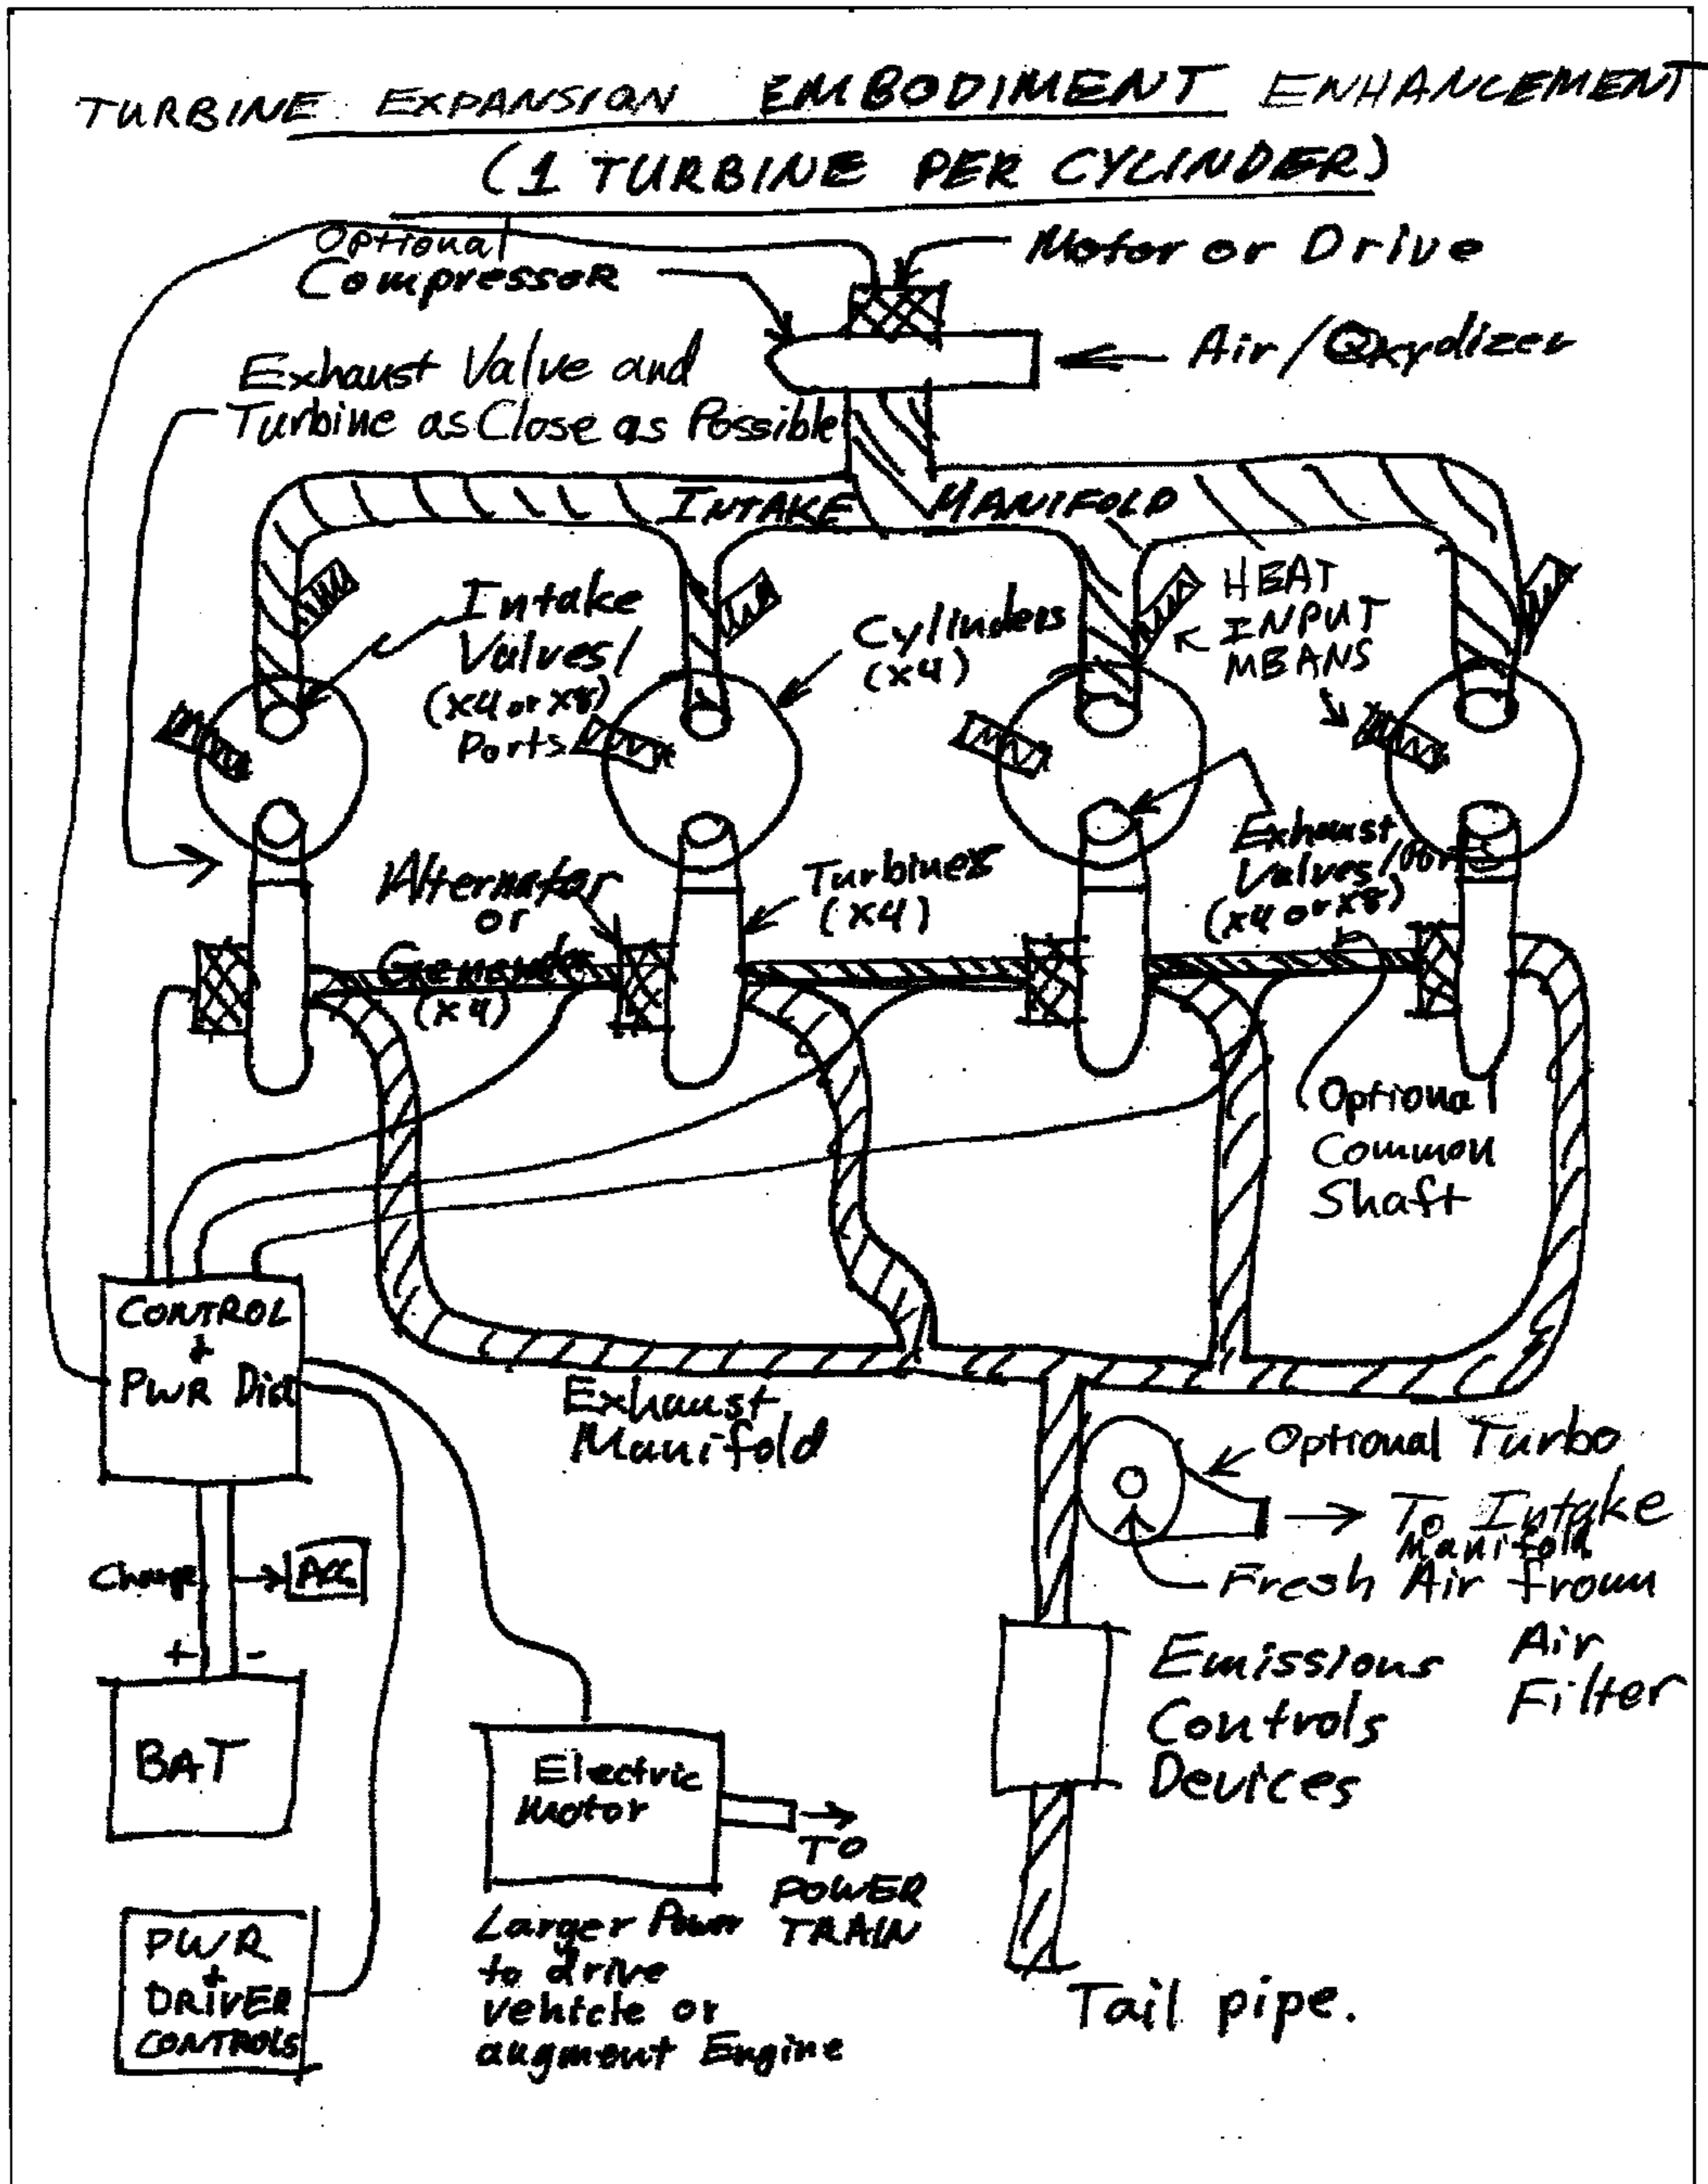 TURBINE EXPANSION EMBODIMENT ENHANCEMENT
(1 TURBINE PER CYLINDER)
Optional
Compressor
Motor or Drive
Air/Oxydizer
Exhaust Valve and
Turbine as Close as Possible
INTAKE MANIFOLD
Intake
Valves/
(x4 or x8)
Ports
Cylinders
(x4)
HEAT
INPUT
MEANS
Alternator
or
Generator
(x4)
Turbines
(x4)
Exhaust
Valves/Ports
(x4 or x8)
Optional
Common
Shaft
CONTROL
+
PWR Dist
Exhaust
Manifold
Optional Turbo
To Intake
Manifold
Fresh Air from
Air
Filter
Charge
ACC
+ -
BAT
Electric
Motor
TO
POWER
TRAIN
Larger Power
to drive
vehicle or
augment Engine
Emissions
Controls
Devices
PWR
+
DRIVER
CONTROLS
Tail pipe.